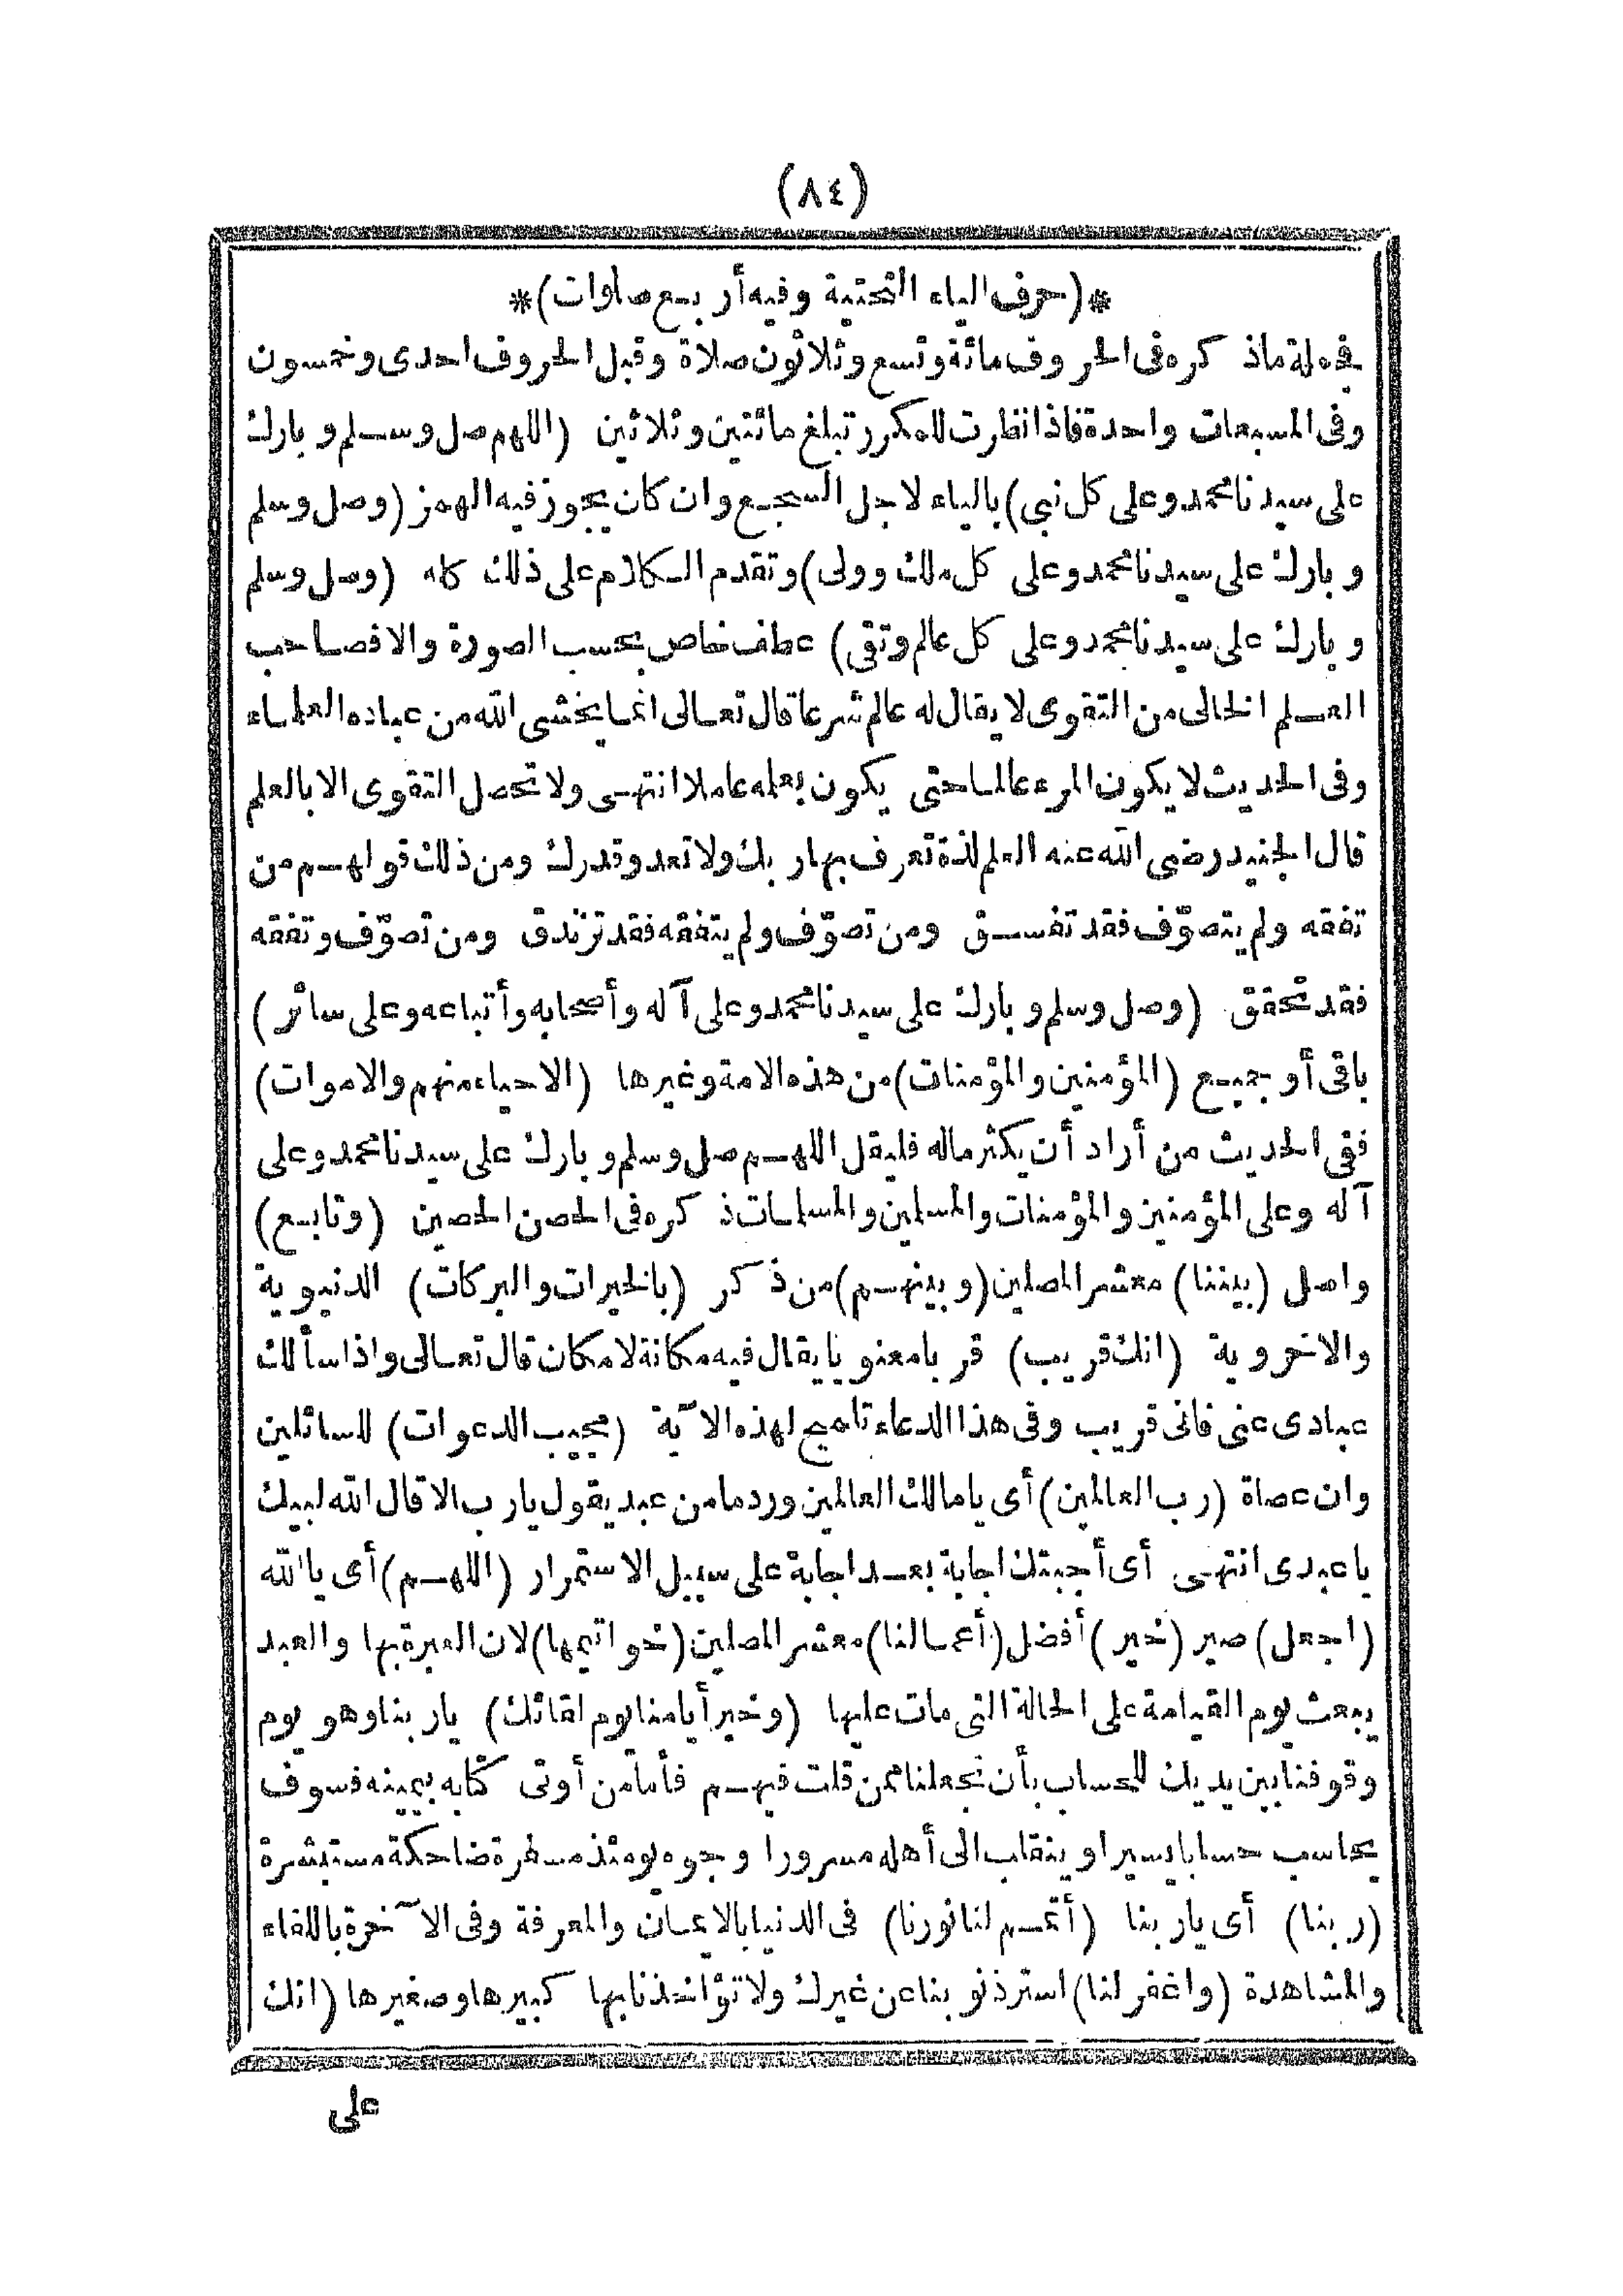 (٨٤)
*(حرف الياء التحتية وفيه أربع صلوات)*
فجملة ماذكره فى الحروف مائة وتسع وثلاثون صلاة وقبل الحروف احدى وخمسون
وفى المسبعات واحدة فاذا نظرت للمكرر تبلغ مائتين وثلاثين (اللهم صل وسلم وبارك
على سيدنا محمد وعلى كل نبي) بالياء لاجل السجع وان كان يجوز فيه الهمز (وصل وسلم
وبارك على سيدنا محمد وعلى كل ملك وولى) وتقدم الكلام على ذلك كله (وصل وسلم
وبارك على سيدنا محمد وعلى كل عالم وتقى) عطف خاص بحسب الصورة والافصاحب
العلم الخالى من التقوى لا يقال له عالم شرعا قال تعالى انما يخشى الله من عباده العلماء
وفى الحديث لا يكون المرء عالما حتى يكون بعلمه عاملا انتهى ولا تحصل التقوى الا بالعلم
قال الجنيد رضى الله عنه العلم لذة تعرف بها ربك ولا تعدو قدرك ومن ذلك قولهم من
تفقه ولم يتصوّف فقد تفسق ومن تصوّف ولم يتفقه فقد تزندق ومن تصوّف وتفقه
فقد تحقق (وصل وسلم وبارك على سيدنا محمد وعلى آله وأصحابه وأتباعه وعلى سائر)
باقى أو جميع (المؤمنين والمؤمنات) من هذه الامة وغيرها (الاحياء منهم والاموات)
ففى الحديث من أراد أن يكثر ماله فليقل اللهم صل وسلم وبارك على سيدنا محمد وعلى
آله وعلى المؤمنين والمؤمنات والمسلمين والمسلمات ذكره فى الحصن الحصين (وتابع)
واصل (بيننا) معشر المصلين (وبينهم) من ذكر (بالخيرات والبركات) الدنيوية
والاخروية (انك قريب) قربا معنويا يقال فيه مكانة لا مكان قال تعالى واذا سألك
عبادى عنى فانى قريب وفى هذا الدعاء تلميح لهذه الآية (مجيب الدعوات) للسائلين
وان عصاة (رب العالمين) أى يا مالك العالمين ورد ما من عبد يقول يارب الا قال الله لبيك
يا عبدى انتهى أى أجبتك اجابة بعد اجابة على سبيل الاستمرار (اللهم) أى يا الله
(اجعل) صير (خير) أفضل (أعمالنا) معشر المصلين (خواتيمها) لان العبرة بها والعبد
يبعث يوم القيامة على الحالة التى مات عليها (وخير أيامنا يوم لقائك) ياربنا وهو يوم
وقوفنا بين يديك للحساب بأن تجعلنا ممن قلت فيهم فأما من أوتى كتابه بيمينه فسوف
يحاسب حسابا يسيرا وينقلب الى أهله مسرورا وجوه يومئذ مسفرة ضاحكة مستبشرة
(ربنا) أى ياربنا (أتمم لنا نورنا) فى الدنيا بالايمان والمعرفة وفى الآخرة باللقاء
والمشاهدة (واغفر لنا) استر ذنوبنا عن غيرك ولا تؤاخذنا بها كبيرها وصغيرها (انك
على